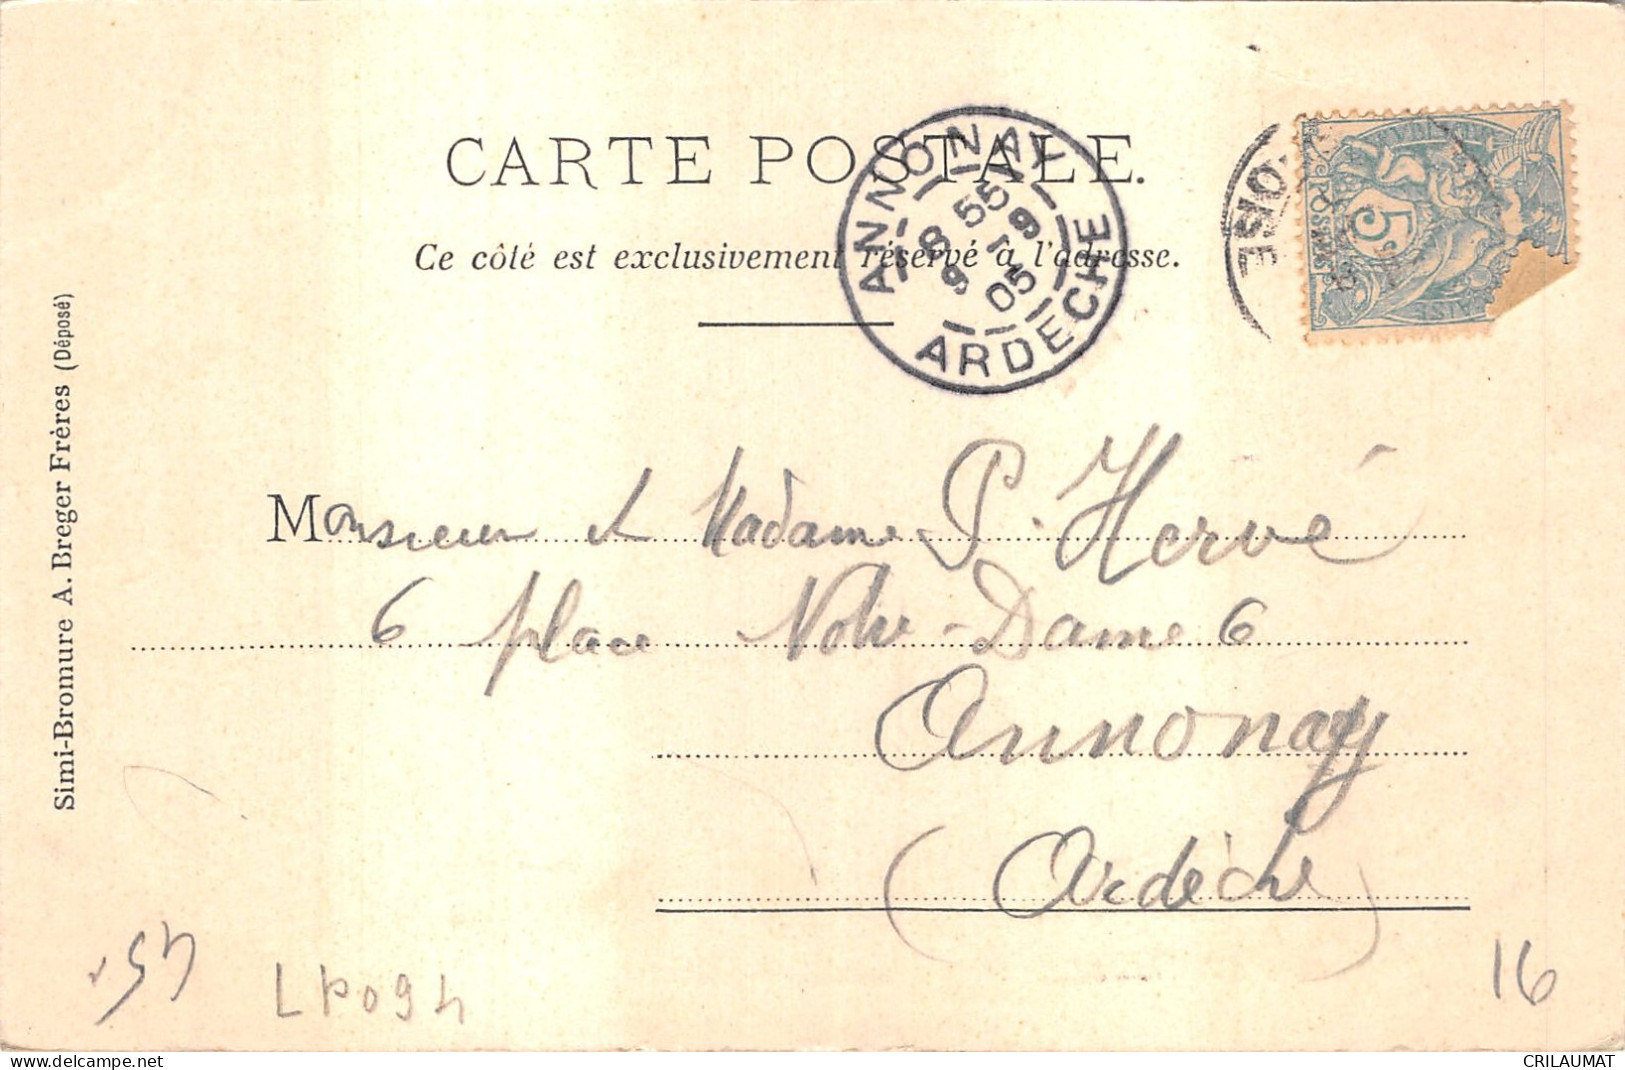 CARTE POSTALE.
Ce côté est exclusivement réservé à l'adresse.
ANNONAY
8 55
9 - 9
05
ARDECHE
OISE
5
POSTES
Simi-Bromure A. Breger Frères (Déposé)
Monsieur et Madame P. Hervé
6 place Notre-Dame 6
Annonay
(Ardèche)
LP094
16
www.delcampe.net
CRILAUMAT